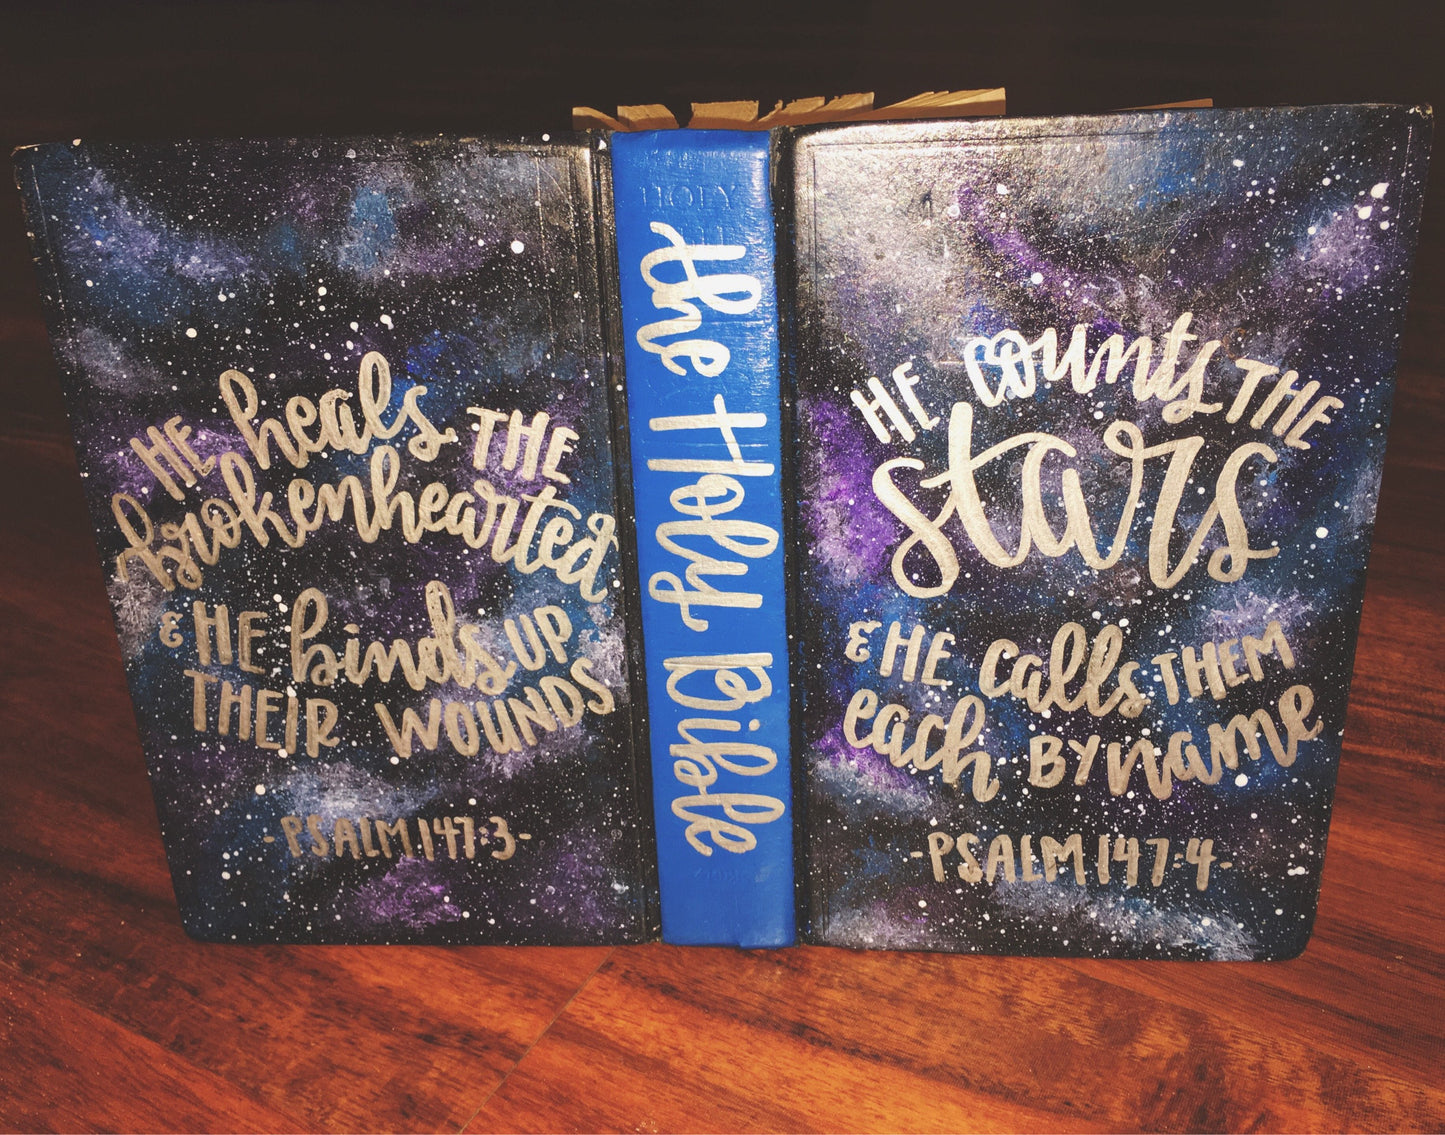 HE heals THE
brokenhearted
& HE binds UP
THEIR WOUNDS
-PSALM 147:3-
HOLY
the Holy Bible
HE counts THE
stars
& HE calls THEM
each BY name
-PSALM 147:4-